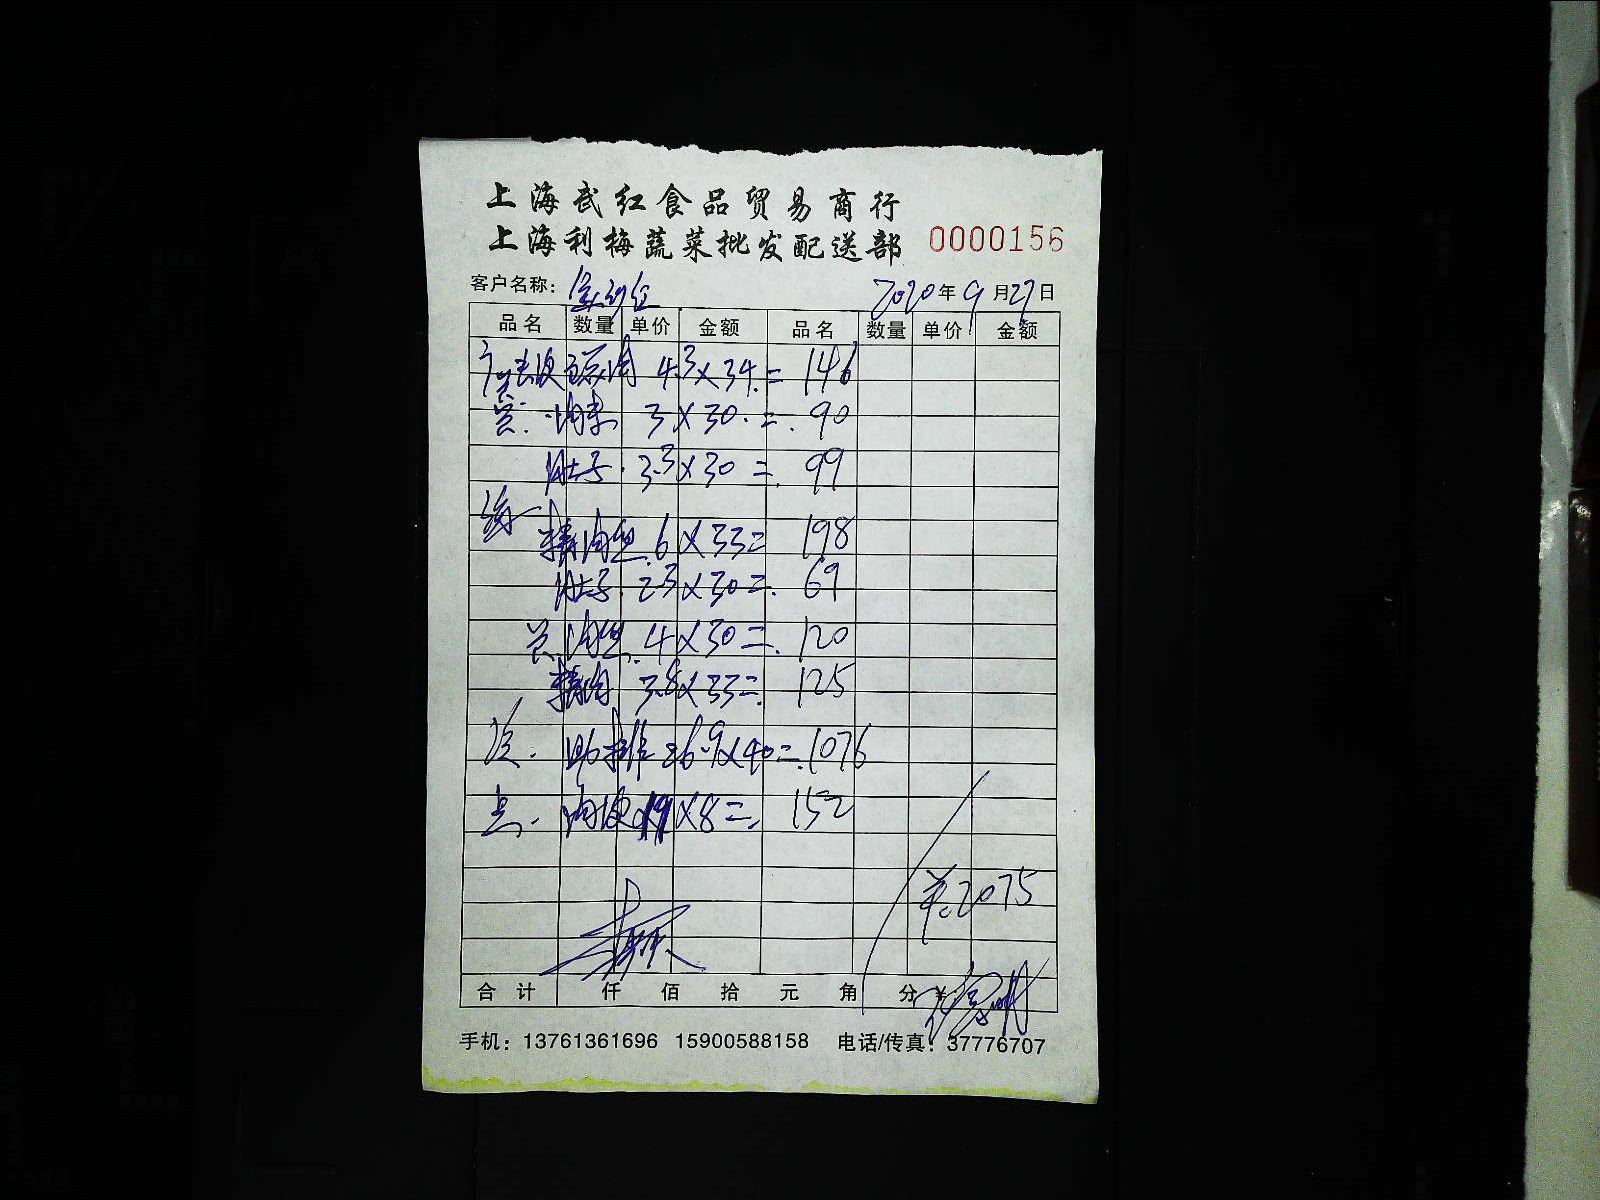 上海武红食品贸易商行
上海利梅蔬菜批发配送部 0000156
客户名称: 2020年9月27日
品名 数量 单价 金额 品名 数量 单价 金额
4.3×34.=146
3×30.=.90
肚子.3.3×30=.99
精肉丝.6×33=198
肚子.2.3×30=.69
肉丝.4×30=.120
精肉.3.8×33=.125
肋排26.9×40=.1076
肉皮19×8=.152
2075
合计 仟 佰 拾 元 角 分 ¥:
手机：13761361696 15900588158 电话/传真：37776707